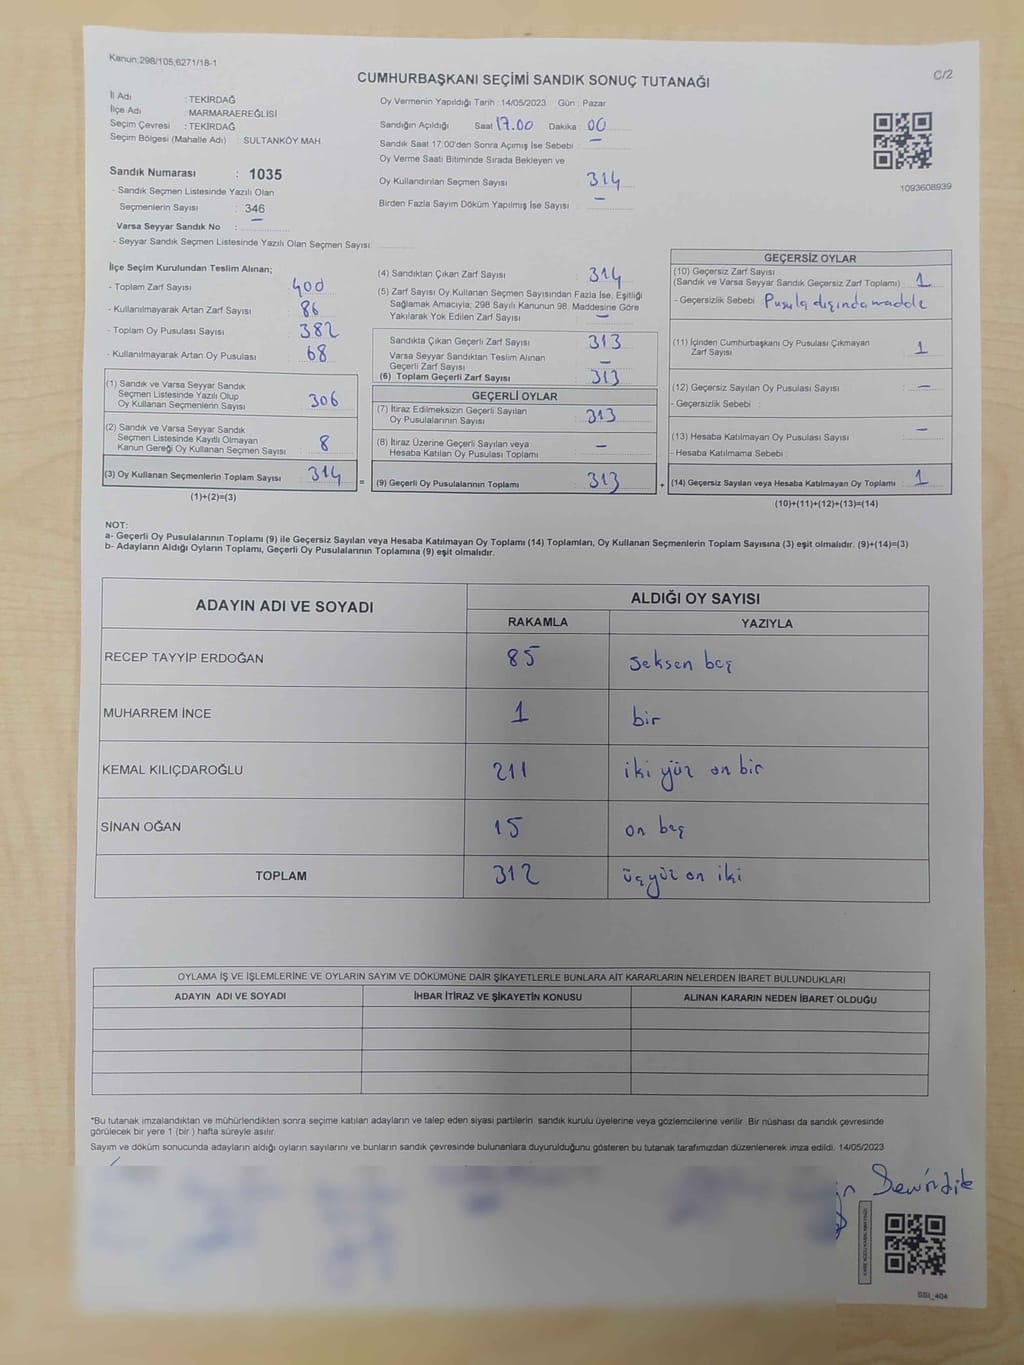 Kanun:298/105,6271/18-1
C/2
CUMHURBAŞKANI SEÇİMİ SANDIK SONUÇ TUTANAĞI
İl Adı : TEKİRDAĞ
İlçe Adı : MARMARAEREĞLİSİ
Seçim Çevresi : TEKİRDAĞ
Seçim Bölgesi (Mahalle Adı) : SULTANKÖY MAH.
Sandık Numarası : 1035
- Sandık Seçmen Listesinde Yazılı Olan
Seçmenlerin Sayısı : 346
Varsa Seyyar Sandık No : —
- Seyyar Sandık Seçmen Listesinde Yazılı Olan Seçmen Sayısı:
Oy Vermenin Yapıldığı Tarih : 14/05/2023 Gün : Pazar
Sandığın Açıldığı Saat 17.00 Dakika : 00
Sandık Saat 17:00'den Sonra Açımış İse Sebebi : —
Oy Verme Saati Bitiminde Sırada Bekleyen ve
Oy Kullandırılan Seçmen Sayısı : 314
Birden Fazla Sayım Döküm Yapılmış İse Sayısı : —
1093608939
İlçe Seçim Kurulundan Teslim Alınan;
- Toplam Zarf Sayısı : 400
- Kullanılmayarak Artan Zarf Sayısı : 86
- Toplam Oy Pusulası Sayısı : 382
- Kullanılmayarak Artan Oy Pusulası : 68
(1) Sandık ve Varsa Seyyar Sandık
Seçmen Listesinde Yazılı Olup
Oy Kullanan Seçmenlerin Sayısı : 306
(2) Sandık ve Varsa Seyyar Sandık
Seçmen Listesinde Kayıtlı Olmayan
Kanun Gereği Oy Kullanan Seçmen Sayısı : 8
(3) Oy Kullanan Seçmenlerin Toplam Sayısı : 314
(1)+(2)=(3)
=
(4) Sandıktan Çıkan Zarf Sayısı : 314
(5) Zarf Sayısı Oy Kullanan Seçmen Sayısından Fazla İse, Eşitliği
Sağlamak Amacıyla; 298 Sayılı Kanunun 98. Maddesine Göre
Yakılarak Yok Edilen Zarf Sayısı : —
Sandıkta Çıkan Geçerli Zarf Sayısı : 313
Varsa Seyyar Sandıktan Teslim Alınan
Geçerli Zarf Sayısı : —
(6) Toplam Geçerli Zarf Sayısı : 313
GEÇERLİ OYLAR
(7) İtiraz Edilmeksizin Geçerli Sayılan
Oy Pusulalarının Sayısı : 313
(8) İtiraz Üzerine Geçerli Sayılan veya
Hesaba Katılan Oy Pusulası Toplamı : —
(9) Geçerli Oy Pusulalarının Toplamı : 313
+
GEÇERSİZ OYLAR
(10) Geçersiz Zarf Sayısı
(Sandık ve Varsa Seyyar Sandık Geçersiz Zarf Toplamı) : 1
- Geçersizlik Sebebi : Pusula dışında madde
(11) İçinden Cumhurbaşkanı Oy Pusulası Çıkmayan
Zarf Sayısı : 1
(12) Geçersiz Sayılan Oy Pusulası Sayısı : —
- Geçersizlik Sebebi :
(13) Hesaba Katılmayan Oy Pusulası Sayısı : —
- Hesaba Katılmama Sebebi :
(14) Geçersiz Sayılan veya Hesaba Katılmayan Oy Toplamı : 1
(10)+(11)+(12)+(13)=(14)
NOT:
a- Geçerli Oy Pusulalarının Toplamı (9) ile Geçersiz Sayılan veya Hesaba Katılmayan Oy Toplamı (14) Toplamları, Oy Kullanan Seçmenlerin Toplam Sayısına (3) eşit olmalıdır. (9)+(14)=(3)
b- Adayların Aldığı Oyların Toplamı, Geçerli Oy Pusulalarının Toplamına (9) eşit olmalıdır.
ADAYIN ADI VE SOYADI ALDIĞI OY SAYISI
RAKAMLA YAZIYLA
RECEP TAYYİP ERDOĞAN 85 seksen beş
MUHARREM İNCE 1 bir
KEMAL KILIÇDAROĞLU 211 iki yüz on bir
SİNAN OĞAN 15 on beş
TOPLAM 312 üçyüz on iki
OYLAMA İŞ VE İŞLEMLERİNE VE OYLARIN SAYIM VE DÖKÜMÜNE DAİR ŞİKAYETLERLE BUNLARA AİT KARARLARIN NELERDEN İBARET BULUNDUKLARI
ADAYIN ADI VE SOYADI İHBAR İTİRAZ VE ŞİKAYETİN KONUSU ALINAN KARARIN NEDEN İBARET OLDUĞU
*Bu tutanak imzalandıktan ve mühürlendikten sonra seçime katılan adayların ve talep eden siyasi partilerin sandık kurulu üyelerine veya gözlemcilerine verilir. Bir nüshası da sandık çevresinde
görülecek bir yere 1 (bir ) hafta süreyle asılır.
Sayım ve döküm sonucunda adayların aldığı oyların sayılarını ve bunların sandık çevresinde bulunanlara duyurulduğunu gösteren bu tutanak tarafımızdan düzenlenerek imza edildi. 14/05/2023
SSI_404